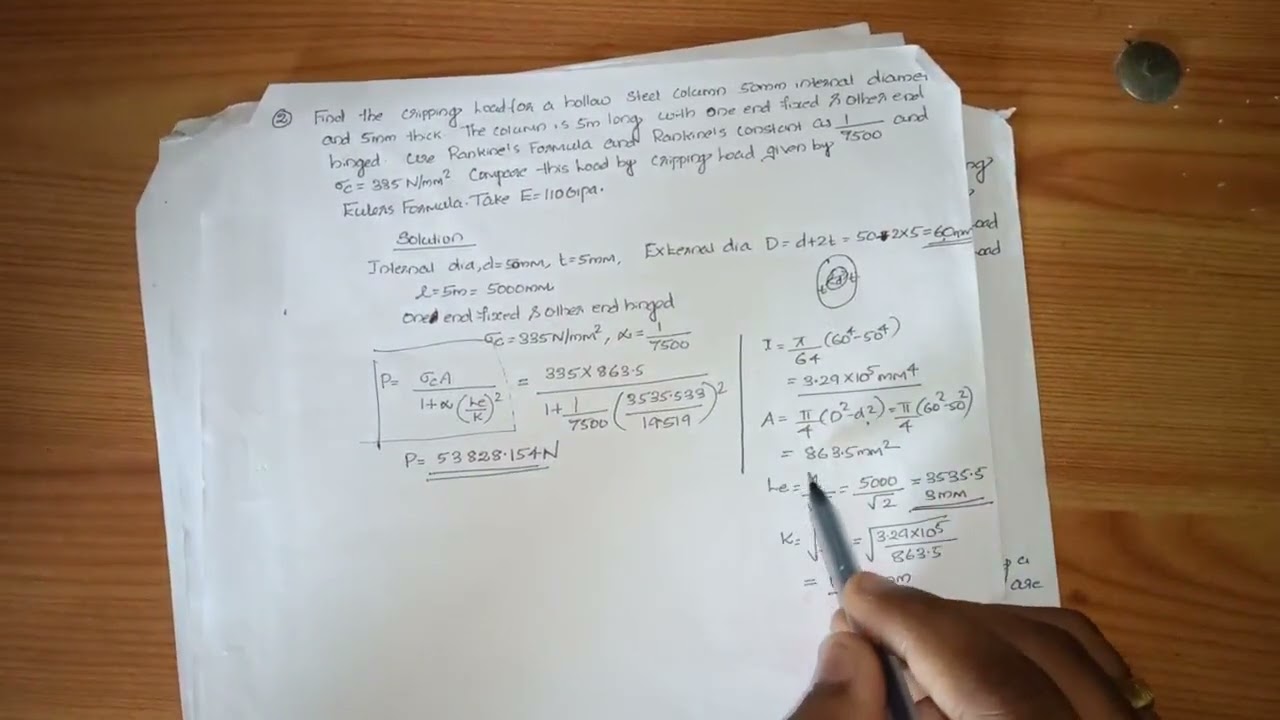 ② Find the cripping load for a hollow steel column 50mm internal diameter
and 5mm thick. The column is 5m long with one end fixed & other end
hinged. Use Rankine's Formula and Rankine's constant as 1/7500 and
σc = 335 N/mm² Compare this load by cripping load given by
Eulers Formula. Take E=110Gpa.
Solution
Internal dia, d=50mm, t=5mm, External dia D = d+2t = 50+2×5 = 60mm
l = 5m = 5000mm
one end fixed & other end hinged
σc = 335N/mm², α = 1/7500
P = σcA / 1+α(Le/K)² = 335×863.5 / 1+1/7500 (3535.533/19.519)²
P = 53828.154N
I = π/64 (60⁴-50⁴)
= 3.29×10⁵mm⁴
A = π/4 (D²-d²) = π/4 (60²-50²)
= 863.5mm²
Le = = 5000/√2 = 3535.5
3mm
K = √ = √3.29×10⁵/863.5
= mm
ng
oad
oad
are